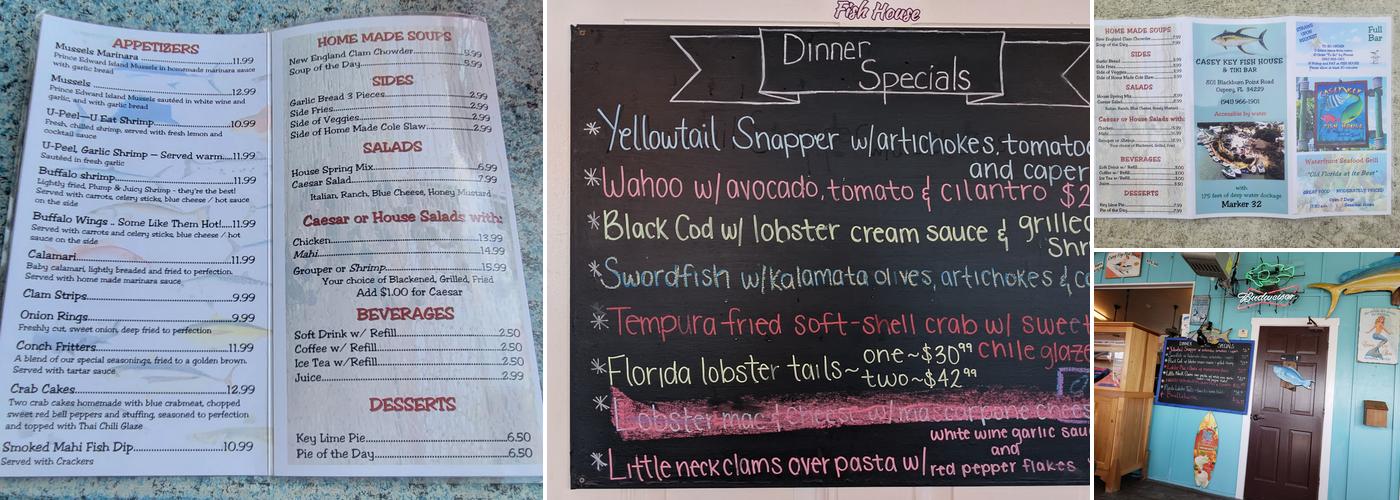 APPETIZERS
Mussels Marinara 11.99
Prince Edward Island Mussels in homemade marinara sauce
with garlic bread
Mussels 12.99
Prince Edward Island Mussels sautéed in white wine and
garlic, and with garlic bread
U-Peel—U Eat Shrimp 10.99
Fresh, chilled shrimp, served with fresh lemon and
cocktail sauce
U-Peel, Garlic Shrimp — Served warm 11.99
Sautéed in fresh garlic
Buffalo shrimp 11.99
Lightly fried, Plump & Juicy Shrimp - they're the best!
Served with carrots, celery sticks, blue cheese / hot sauce
on the side
Buffalo Wings .. Some Like Them Hot! 11.99
Served with carrots and celery sticks, blue cheese / hot
sauce on the side
Calamari 11.99
Baby calamari, lightly breaded and fried to perfection.
Served with home made marinara sauce
Clam Strips 9.99
Onion Rings 9.99
Freshly cut, sweet onion, deep fried to perfection
Conch Fritters 11.99
A blend of our special seasonings, fried to a golden brown.
Served with tartar sauce
Crab Cakes 12.99
Two crab cakes homemade with blue crabmeat, chopped
sweet red bell peppers and stuffing, seasoned to perfection
and topped with Thai Chili Glaze
Smoked Mahi Fish Dip 10.99
Served with Crackers
HOME MADE SOUPS
New England Clam Chowder 5.99
Soup of the Day 5.99
SIDES
Garlic Bread 3 Pieces 2.99
Side Fries 2.99
Side of Veggies 2.99
Side of Home Made Cole Slaw 2.99
SALADS
House Spring Mix 6.99
Caesar Salad 7.99
Italian, Ranch, Blue Cheese, Honey Mustard
Caesar or House Salads with:
Chicken 13.99
Mahi 14.99
Grouper or Shrimp 15.99
Your choice of Blackened, Grilled, Fried
Add $1.00 for Caesar
BEVERAGES
Soft Drink w/ Refill 2.50
Coffee w/ Refill 2.50
Ice Tea w/ Refill 2.50
Juice 2.99
DESSERTS
Key Lime Pie 6.50
Pie of the Day 6.50
Fish House
Dinner
Specials
*Yellowtail Snapper w/artichokes, tomato
and caper
*Wahoo w/avocado, tomato & cilantro $2
*Black Cod w/ lobster cream sauce & grilled
Shr
*Swordfish w/kalamata olives, artichokes & c
*Tempura fried soft-shell crab w/ sweet
chile glaze
*Florida lobster tails~ one~$30.99
two~$42.99
*Lobster mac & cheese w/mascarpone chees
*Little neck clams over pasta w/ white wine garlic sauc
and
red pepper flakes
HOME MADE SOUPS
New England Clam Chowder
Soup of the Day
SIDES
Garlic Bread
Side Fries
Side of Veggies
Side of Home Made Cole Slaw
SALADS
House Spring Mix
Caesar Salad
Caesar or House Salads with:
BEVERAGES
DESSERTS
Key Lime Pie
Pie of the Day
CASEY KEY FISH HOUSE
& TIKI BAR
801 Blackburn Point Road
Osprey, FL 34229
(941) 966-1901
Accessible by water
with
175 feet of deep water dockage
Marker 32
Full
Bar
CASEY KEY
FISH HOUSE
Waterfront Seafood Grill
"Old Florida at its Best"
GREAT FOOD
Budweiser
DINNER SPECIALS